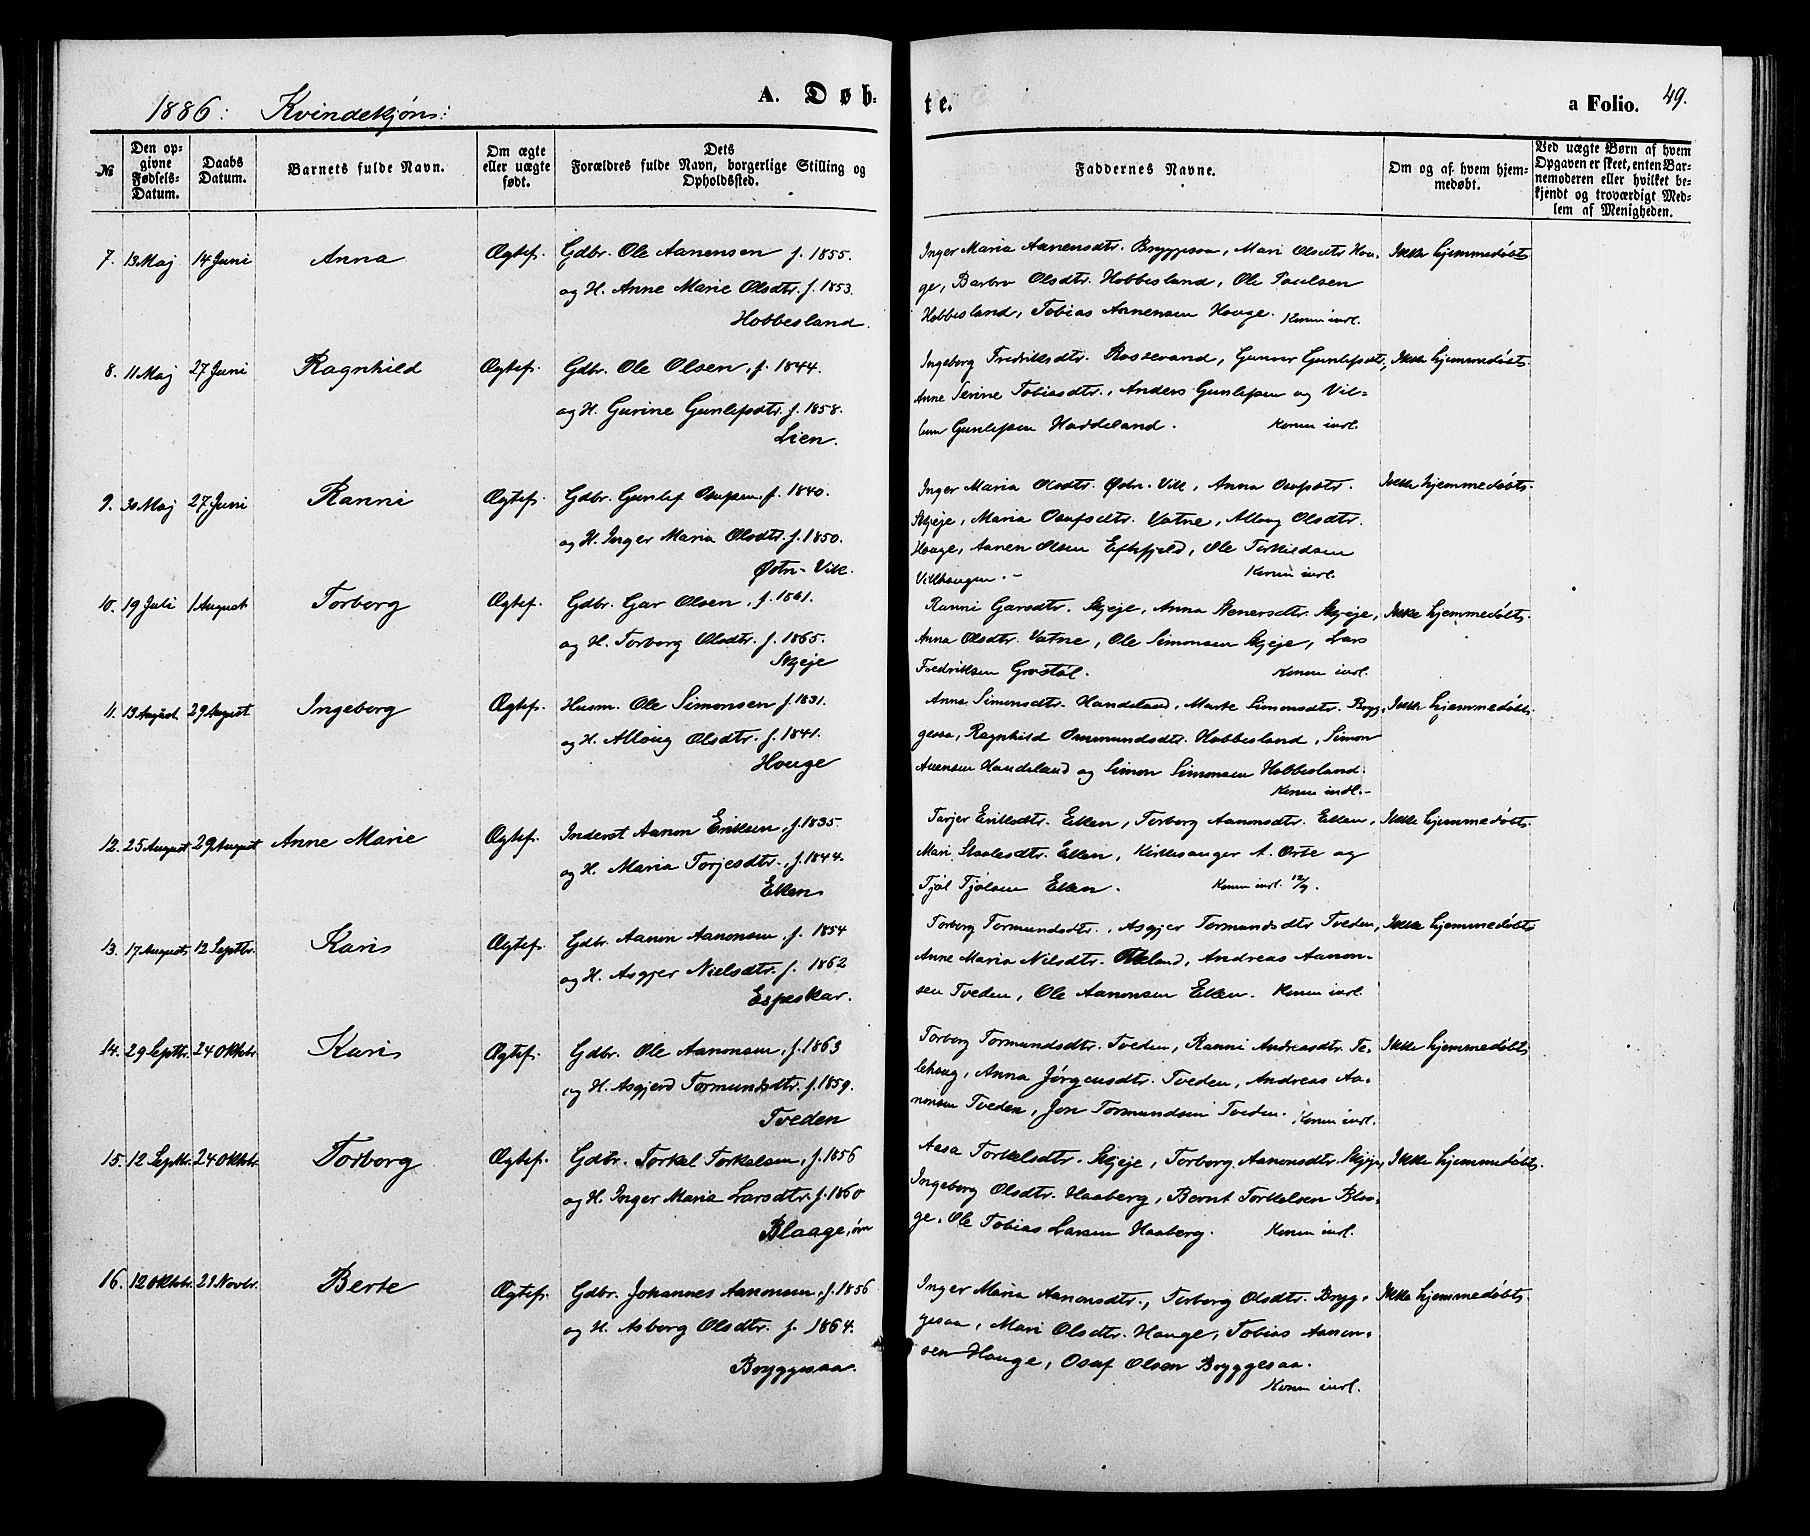 1886: Kvindekjøn: A. Døb-
te. a Folio. 49.
№
Den op-
givne
Fødsels-
Datum.
Daabs
Datum.
Barnets fulde Navn.
Om ægte
eller uægte
født.
Dets
Forældres fulde Navn, borgerlige Stilling og
Opholdssted.
Faddernes Navne.
Om og af hvem hjem-
medøbt.
Ved uægte Børn af hvem
Opgaven er skeet, enten Bar-
nemoderen eller hvilket be-
kjendt og troværdigt Med-
lem af Menigheden.
7. 13 Maj 14 Juni Anna Ægtef. Gdbr. Ole Aanensen f. 1855.
og H. Anne Marie Olsdtr. f. 1853.
Hobbesland.
Inger Maria Aanensdtr. Bryggesaa, Mari Olsdtr Hou-
ge, Barbro Olsdtr. Hobbesland, Ole Paulsen
Hobbesland, Tobias Aanensen Houge. Konen indl.
Ikke hjemmedøbt
8. 11 Maj 27 Juni Ragnhild Ægtef. Gdbr. Ole Olsen, f. 1844.
og H. Gurine Gunlefsdtr. f. 1858.
Lien.
Ingeborg Fredriksdtr. Rossevand, Gunvor Gunlefsdtr,
Anne Serine Tobiasdtr., Anders Gunlefsen og Vil-
lum Gunlefsen Haddeland. Konen indl.
Ikke hjemmedøbt.
9. 30 Maj 27 Juni Ranni Ægtef. Gdbr. Gunlef Osufsen, f. 1840.
og H. Inger Maria Olsdtr. f. 1850.
Østn-Vik.
Inger Maria Olsdtr. Østn-Vik, Anna Osufsdtr.
Skjeje, Maria Osufsdtr. Vatne, Alloug Olsdtr.
Houge, Aanen Olsen Eftefjeld, Ole Terkildsen
Vikhaugen. - Konen indl.
Ikke hjemmedøbt.
10. 19 Juli 1 August Torborg Ægtef. Gdbr. Gar Olsen, f. 1861.
og H. Torborg Olsdtr. f. 1865.
Skjeje
Ranni Garsdtr. Skjeje, Anna Stenersdtr. Skjeje,
Anna Olsdtr. Vatne, Ole Simonsen Skjeje, Lars
Fredriksen Grostøl. Konen indl.
Ikke hjemmedøbt.
11. 13 August. 29 August Ingeborg Ægtef. Husm. Ole Simonsen f. 1831.
og H. Alloug Olsdtr. f. 1841.
Houge
Anna Simonsdtr. Handeland, Marte Simonsdtr. Bryg-
gesaa, Ragnhild Ommundsdtr. Hobbesland, Simon
Auensen Handeland og Simon Simonsen Hobbesland.
Konen indl.-
Ikke hjemmedøbt.
12. 25 August 29 August Anne Marie Ægtef. Inderst Aanon Eriksen, f. 1835.
og H. Maria Torjesdtr., f. 1844.
Eken
Tarjer Eriksdtr. Eken, Torborg Aanonsdtr. Eken,
Mari Staalesdtr. Eken, Kirkesanger A. Orte og
Tjøl Tjølsen Eken. Konen indl. 12/9.
Ikke hjemmedøbt.
13. 17 August, 12 Septbr. Karis Ægtef. Gdbr. Aanon Aanonsen, f. 1854
og H. Asgjer Nielsdtr. f. 1862
Espeskar.
Torborg Tormundsdtr., Asgjer Tormundsdtr Tveden,
Anne Maria Nilsdtr. Øksland, Andreas Aanon-
sen Tveden, Ole Aanonsen Eken. Konen indl.
Ikke hjemmedøbt
14. 29 Septbr. 24 Oktbr. Karis Ægtef. Gdbr. Ole Aanonsen, f. 1863
og H. Asgjerd Tormundsdtr. f. 1859.
Tveden
Torborg Tormundsdtr. Tveden, Ranni Andreasdtr. Te-
lehoug, Anna Jørgensdtr. Tveden, Andreas Aa-
nonsen Tveden, Jon Tormundsen Tveden. Konen indl.
Ikke hjemmedøbt
15. 12 Septbr. 24 Oktbr. Torborg Ægtef. Gdbr. Torkel Torkelsen, f. 1856
og H. Inger Maria Larsdtr. f. 1860
Blaage, øn
Aasa Torkelsdtr. Skjeje, Torborg Aanonsdtr. Skjeje,
Ingeborg Olsdtr. Haaberg, Bernt Torkelsen Blaa-
ge, Ole Tobias Larsen Haaberg. Konen indl.
Ikke hjemmedøbt.
16. 12 Oktbr. 21 Novbr. Berte Ægtef. Gdbr. Johannes Aanonsen, f. 1856
og H. Asborg Olsdtr. f. 1864.
Bryggesaa.
Inger Maria Aanonsdtr., Torborg Olsdtr. Bryg-
gesaa, Mari Olsdtr. Houge, Tobias Aanon-
sen Houge, Osuf Olsen Bryggesaa.
Konen indl.
Ikke hjemmedøbt.